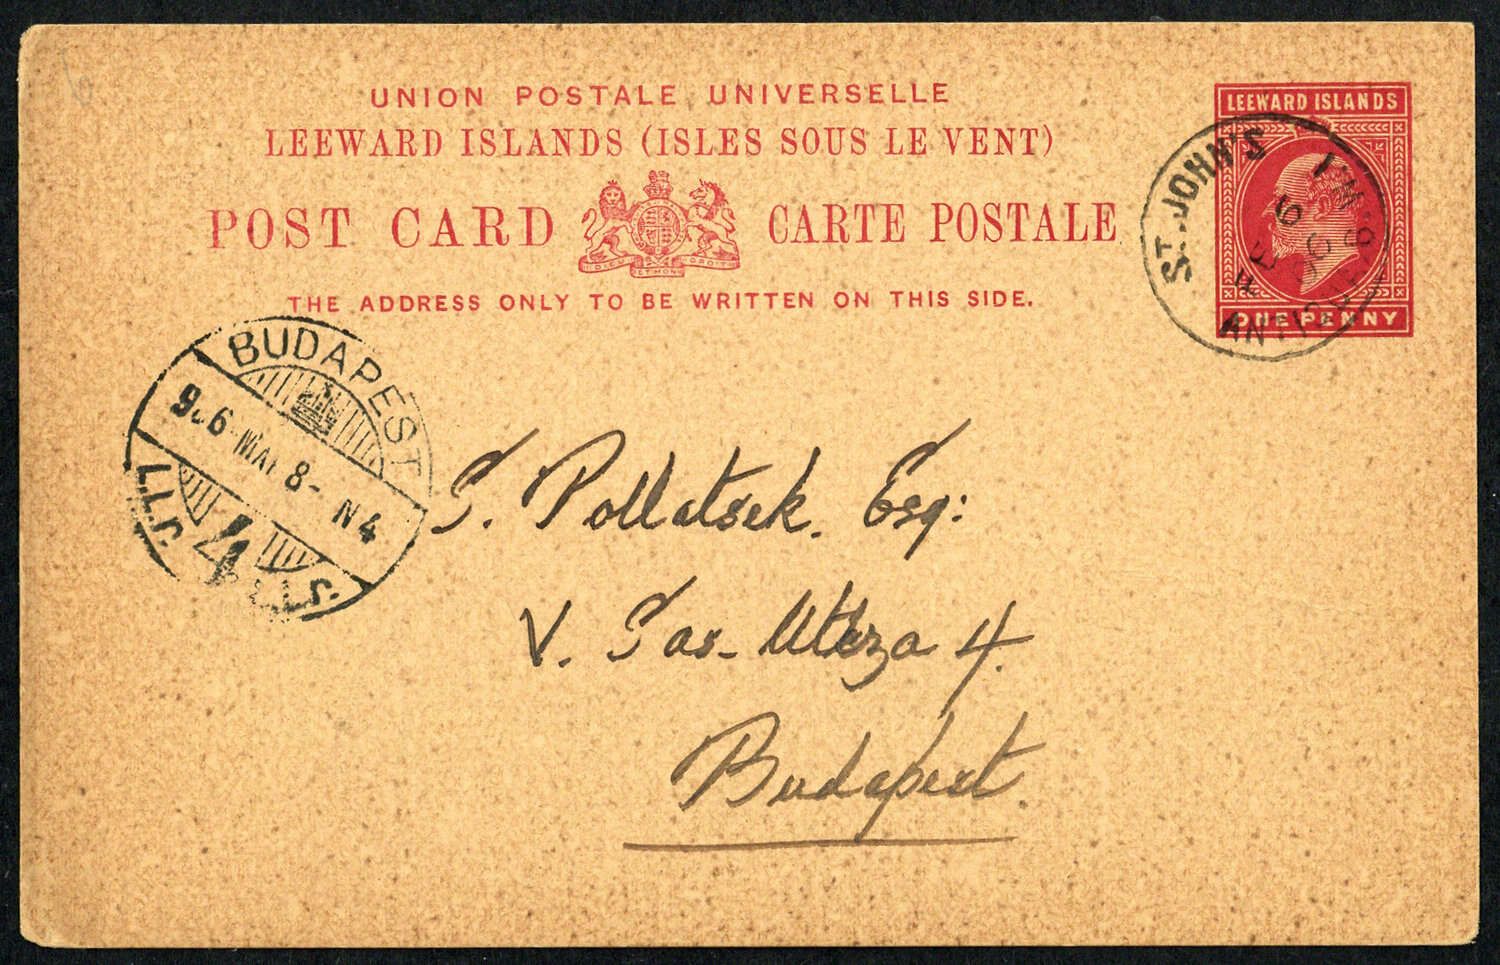 UNION POSTALE UNIVERSELLE
LEEWARD ISLANDS (ISLES SOUS LE VENT)
POST CARD CARTE POSTALE
DIEU ET MON DROIT
THE ADDRESS ONLY TO BE WRITTEN ON THIS SIDE.
LEEWARD ISLANDS
ONE PENNY
ST. JOHN'S
FE 6
06
ANTIGUA
BUDAPEST
906 MAI 8- N4
4
S. Pollatsek. Esq:
V. Sas-Utcza 4.
Budapest.